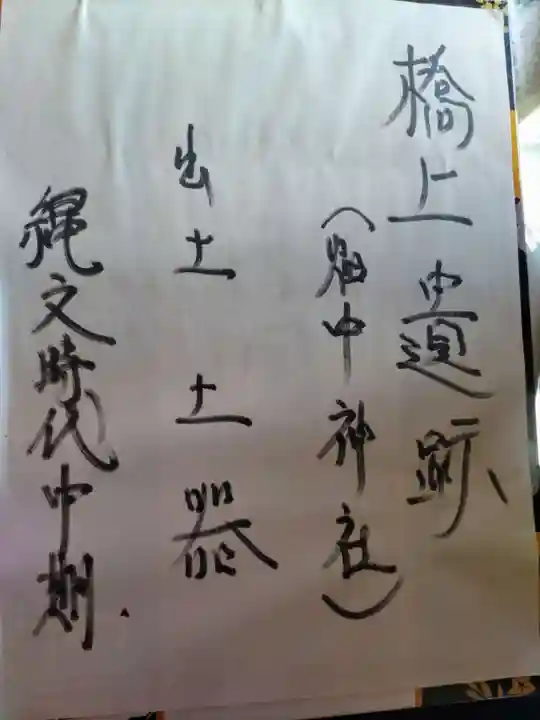 橋上遺跡
(畑中神社)
出土土器
縄文時代中期.